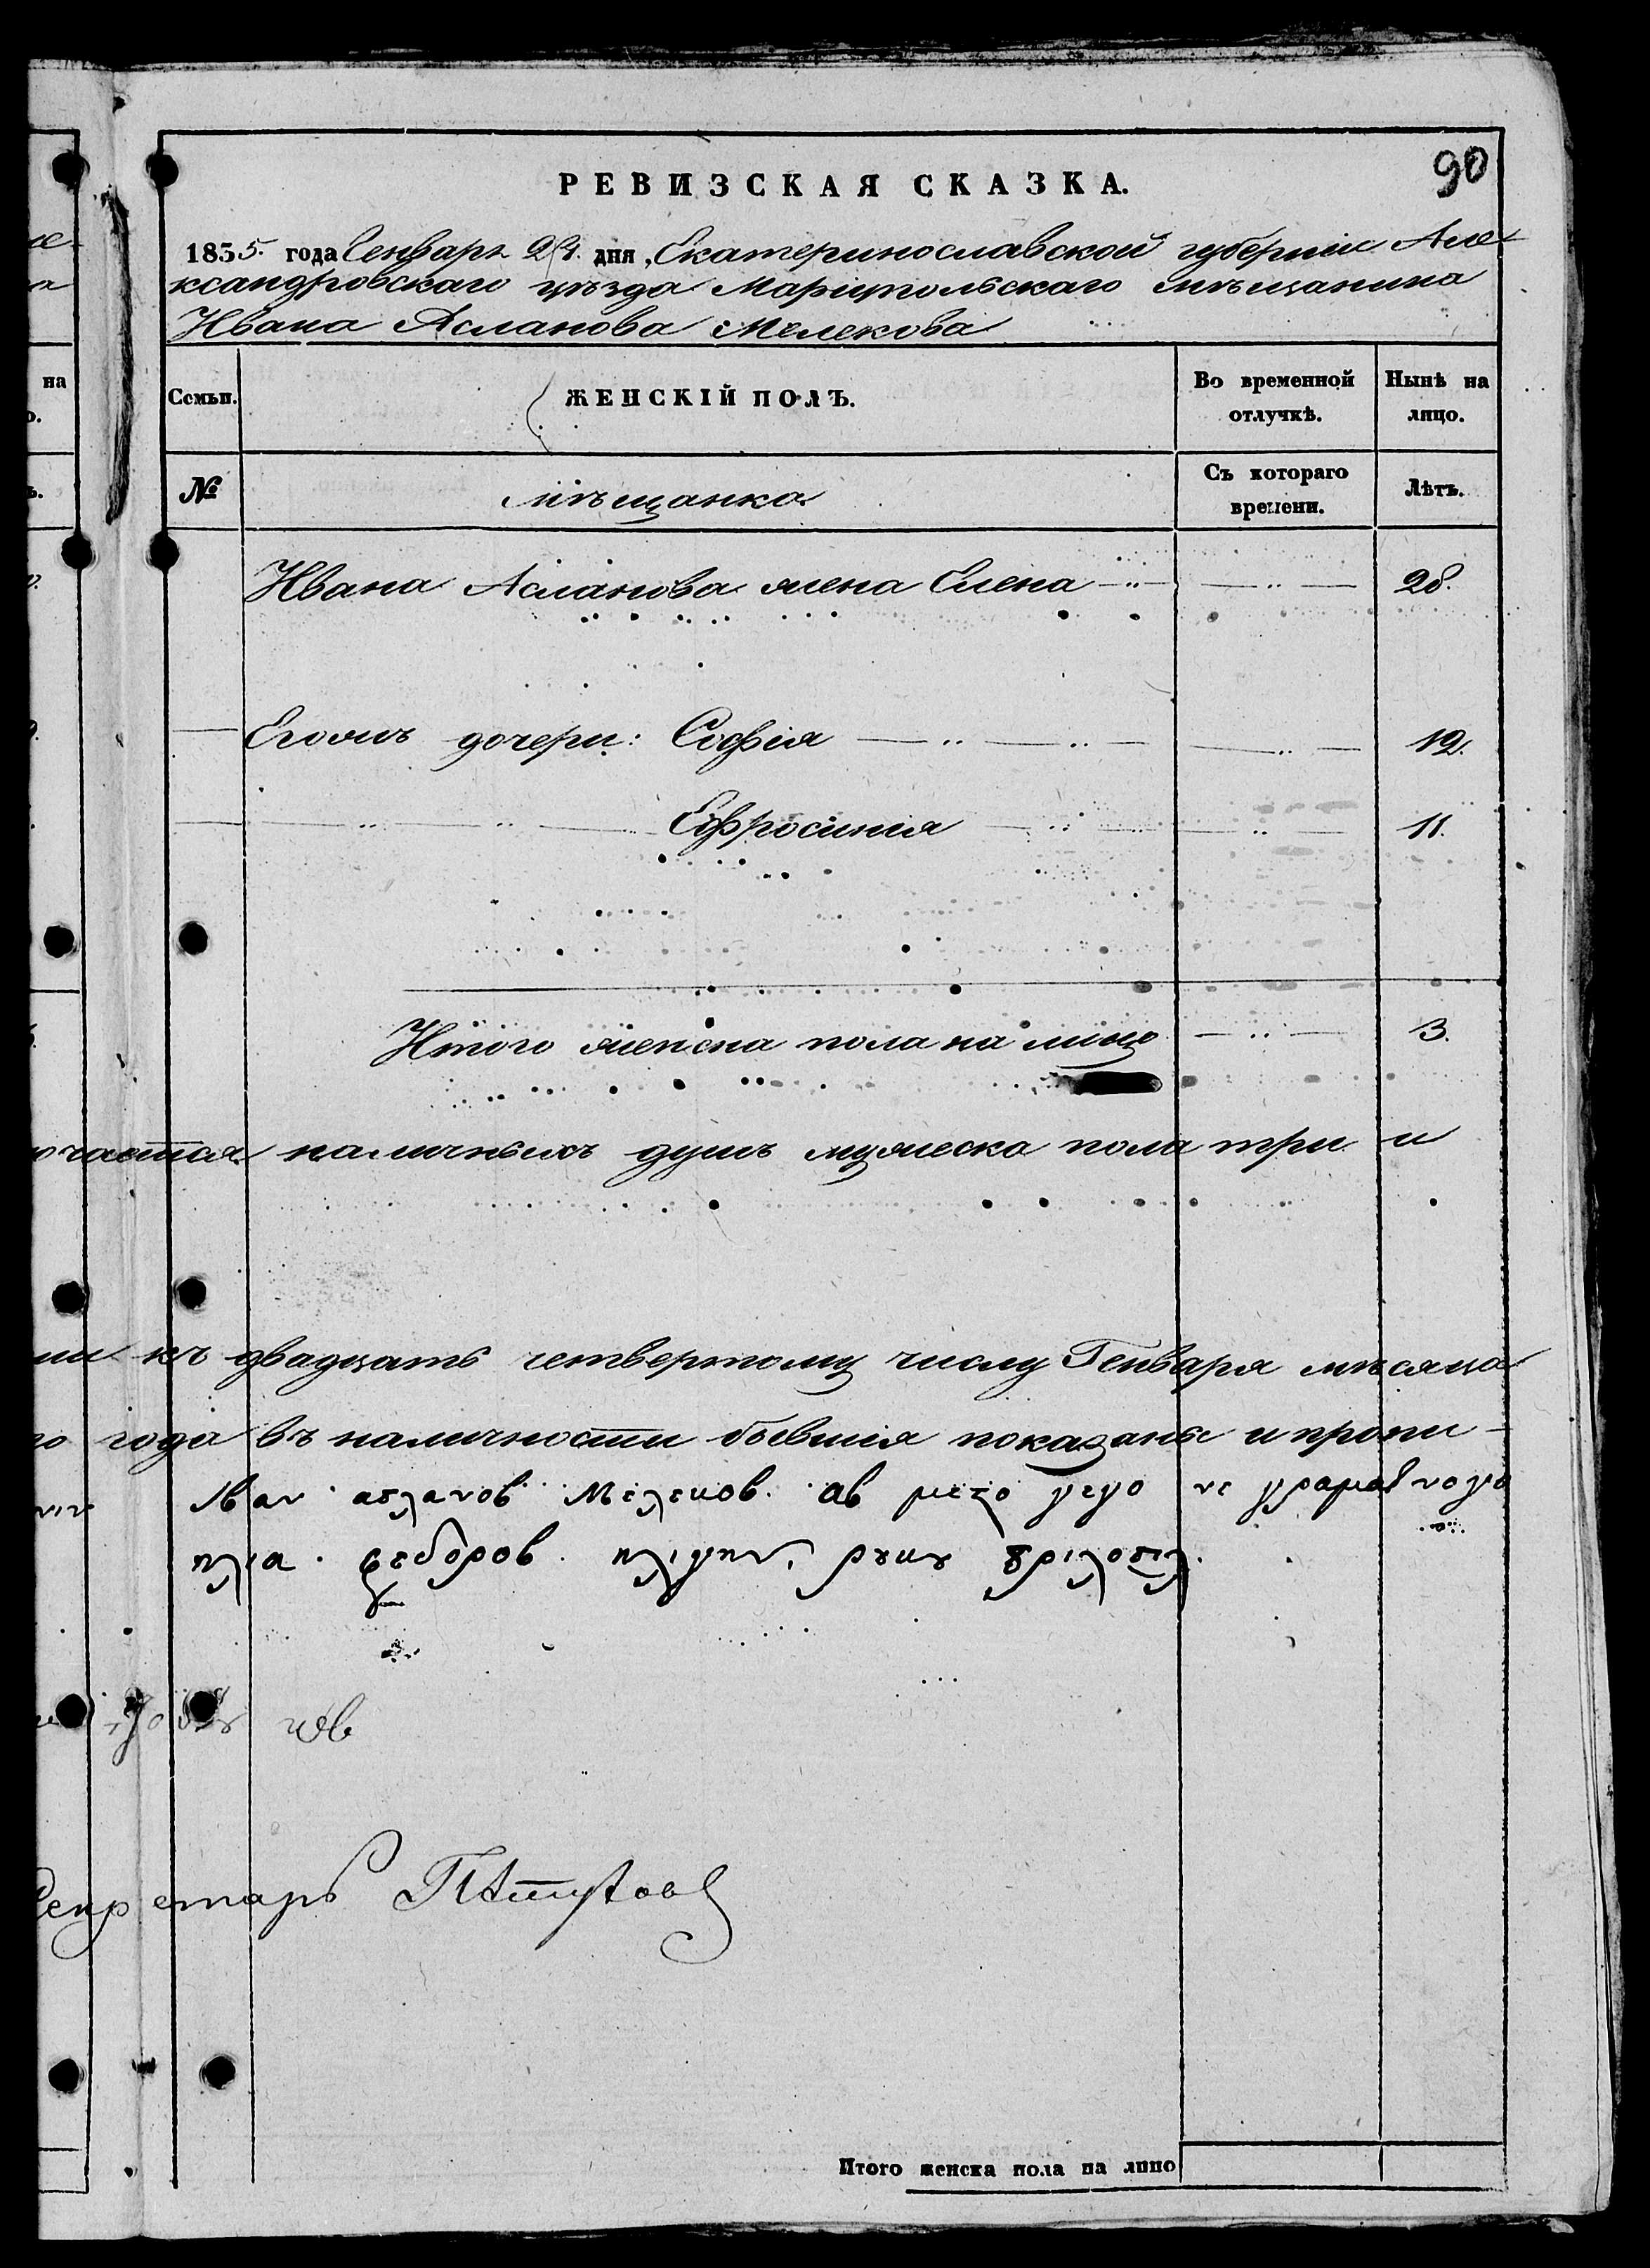 90
РЕВИЗСКАЯ СКАЗКА.
1835. года Генваря 24. дня, Екатеринославской губерніи Але-
ксандровскаго уѣзда Маріупольскаго мѣщанина
Ивана Асланова Мелекова
на
Семьи. ЖЕНСКІЙ ПОЛЪ. Во временной отлучкѣ. Нынѣ на лицо.
№ мѣщанка Съ котораго времени. Лѣтъ.
Ивана Асланова жена Елена 28.
Егожъ дочери: Софія 12.
Ефросинія 11.
Итого женска пола на лицо 3.
наличныхъ душъ мужеска пола три и
къ двадцать четвертому числу Генваря мѣсяца
года въ наличности бывшія показаны и пропи-
Іван асланов Мелеков
федоров
Секретарь
Итого женска пола на лицо